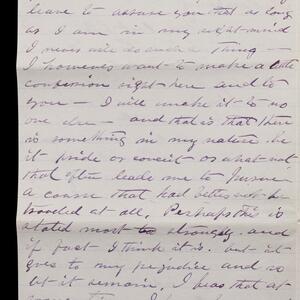 leave to assure you that as long
as I am in my right mind
I never will do such a thing —
I however want to make a little
confession right here and to
you — I will make it to no
one else — and that is that there
is something in my nature be
it pride or conceit or what not
that often leads me to pursue
a course that had better not be
traveled at all. Perhaps this is
stated most strongly. and
in fact I think it is. but it
goes to my prejudice and so
let it remain. I was that at